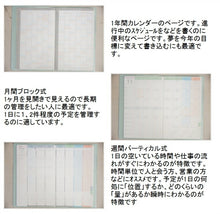 1年間カレンダーのページです。進
行中のスケジュールをなどを書くのに
便利なページです。夢を今年の目
標に変えて書き込むにも最適で
す。
月間ブロック式
1ヶ月を見開きで見えるので長期
の管理をしたい人に最適です。
1日に1、2件程度の予定を管理す
るのに適しています。
週間バーティカル式
1日の空いている時間や仕事の流れ
がすぐにわかるのが特徴です。
時間単位で人と会う方、営業の方
などにオススメです。予定が1日の何
処に「位置」するか、どのくらいの
「量」があるか瞬時にわかるのが
特徴です